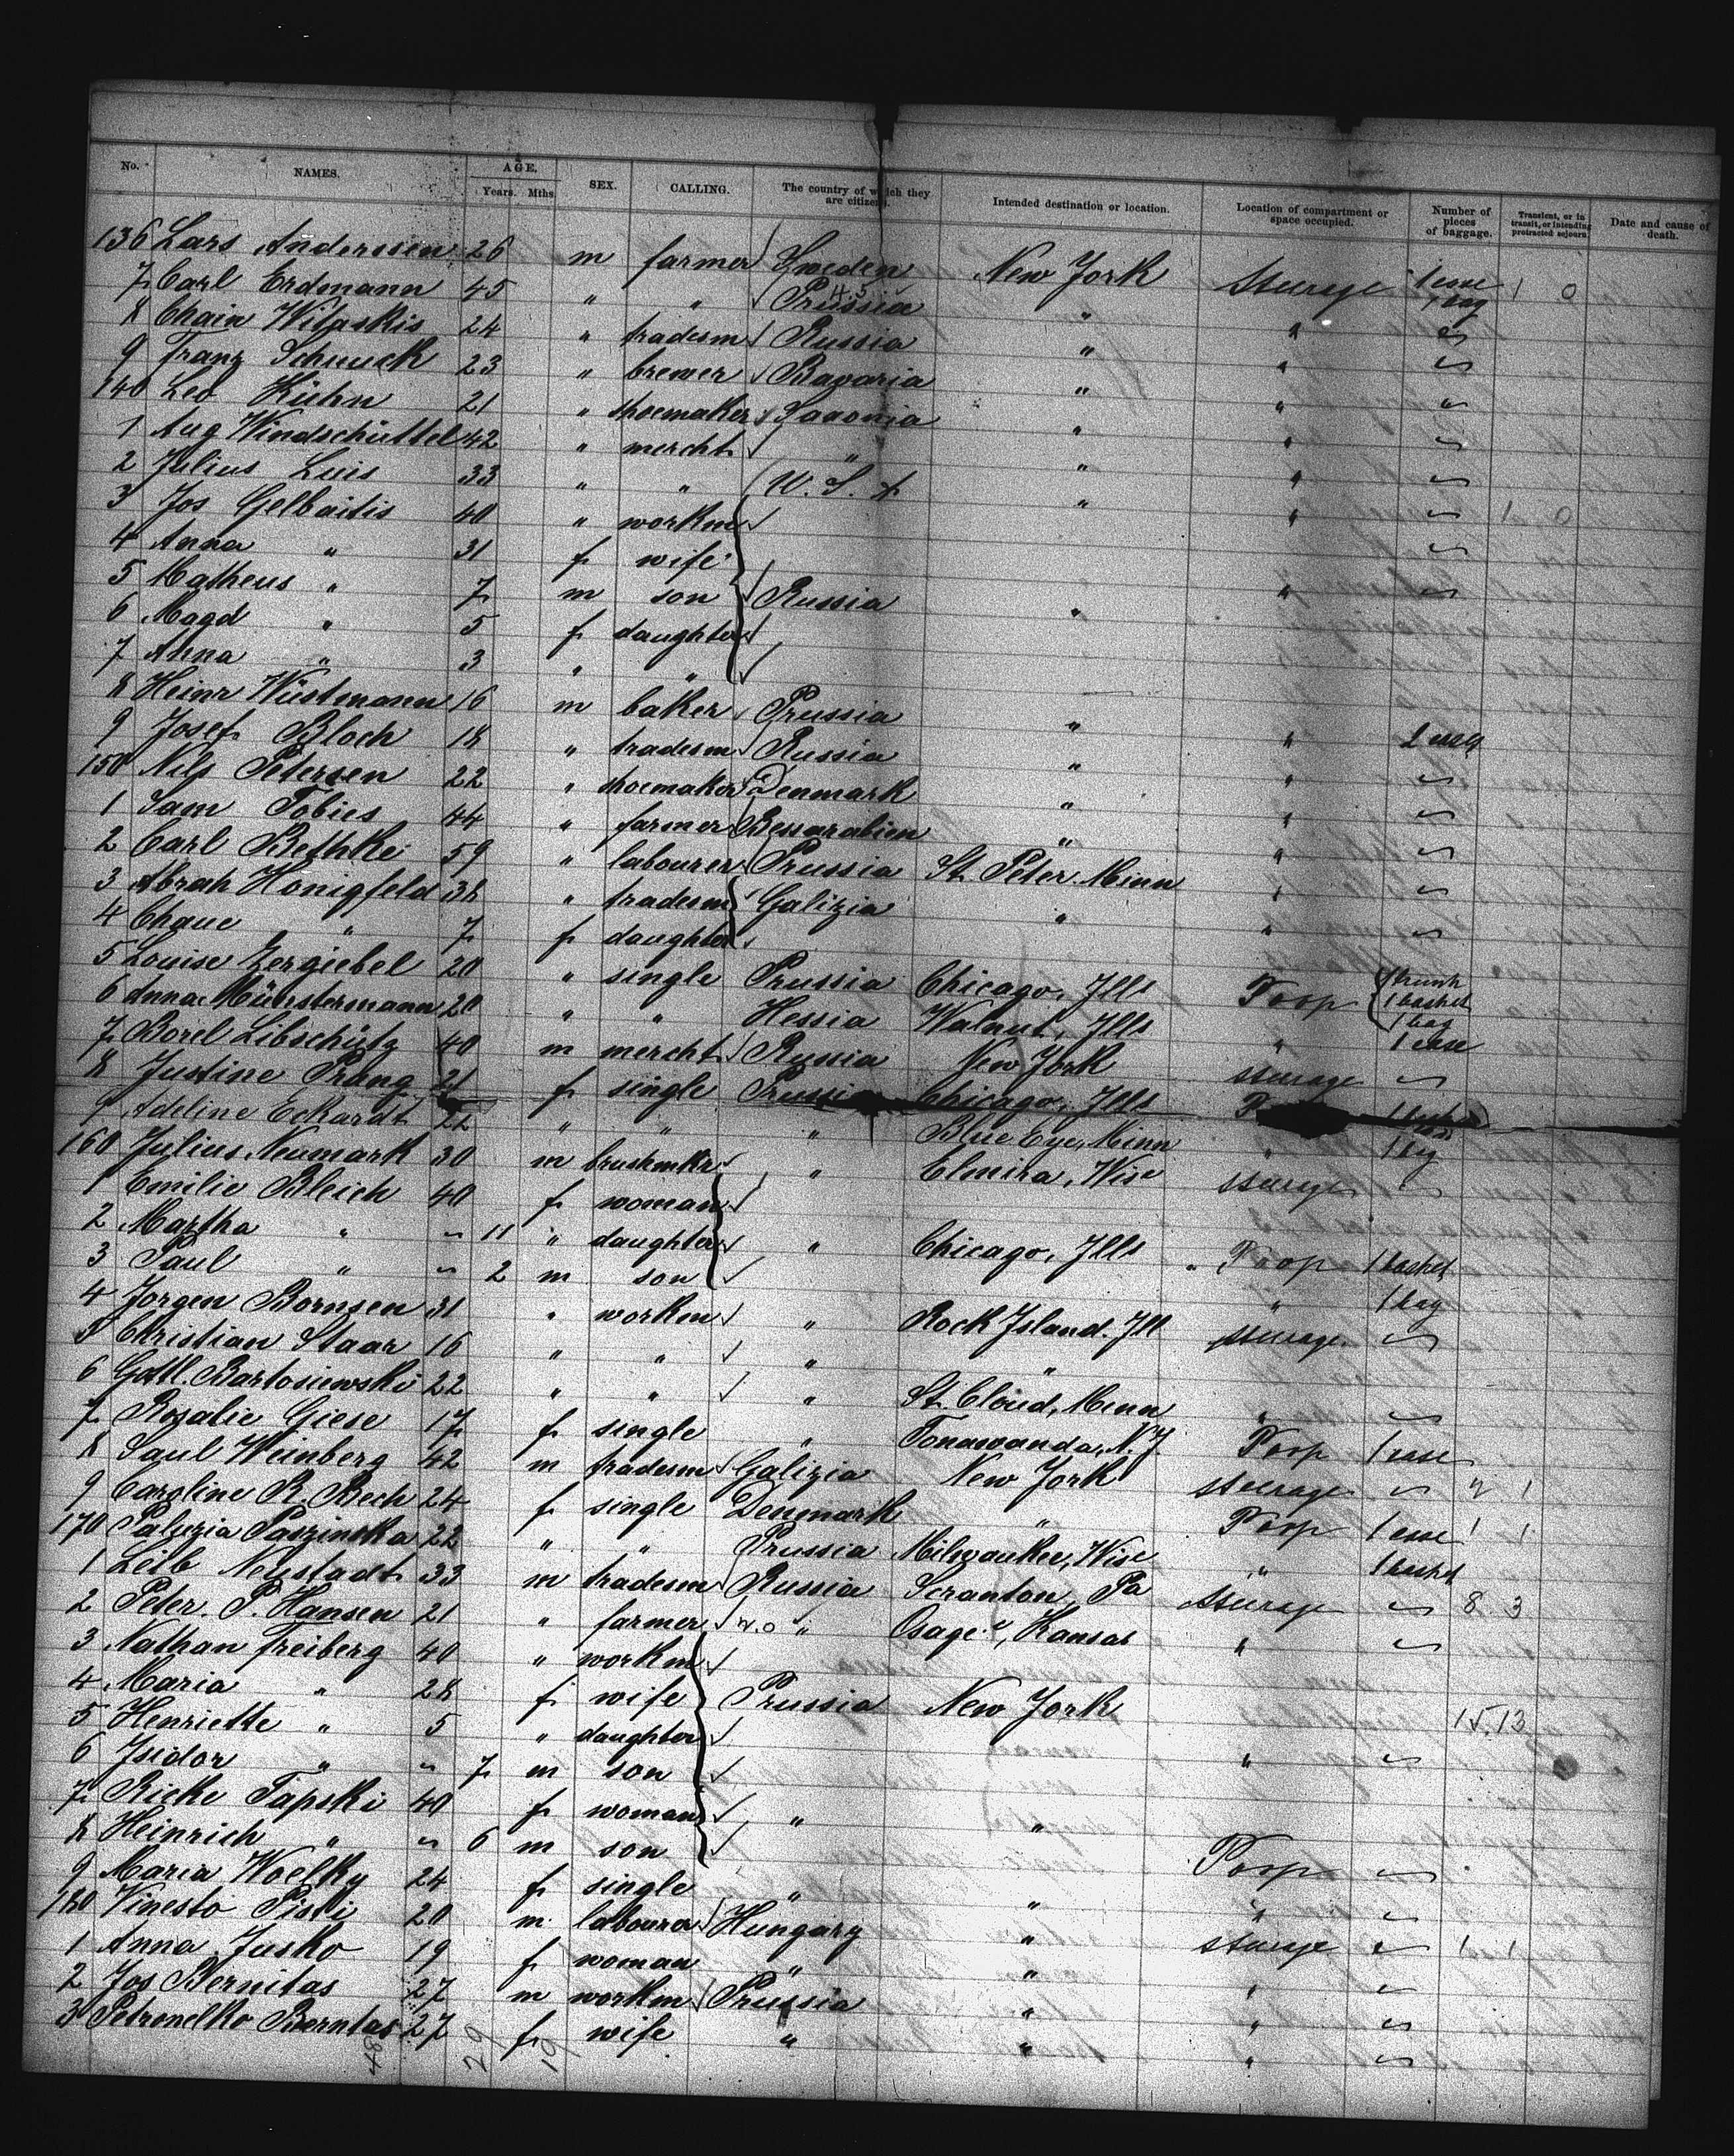 No. NAMES. AGE. Years. Mths SEX. CALLING. The country of which they are citizens. Intended destination or location. Location of compartment or space occupied. Number of pieces of baggage. Transient, or in transit, or intending protracted sejourn Date and cause of death.
136 Lars Anderssen 26 m farmer Sweden New York Steerage 1 case 1 0
7 Carl Erdmann 45 " " Prussia " " 1 bag
8 Chain Wilpskis 24 " tradesm Russia " "
9 Franz Schuuck 23 " brewer Bavaria " "
140 Leo Kühn 21 " shoemaker Saxonia " "
1 Aug Windschüttel 42 " mercht " " "
2 Julius Luis 33 " " U. S. " " 1 0
3 Jos Gelbaitis 40 " workm
4 Anna " 31 f wife
5 Matheus " 7 m son Russia " "
6 Magd " 5 f daughter
7 Anna " 3 " "
8 Heinr Wüstemann 16 m baker Prussia " "
9 Josef Bloch 18 " tradesm Russia " "
150 Nils Petersen 22 " shoemaker Denmark " "
1 Sam Tobies 44 " farmer Bessarabien " "
2 Carl Bethke 59 " labourer Prussia St. Peter. Minn "
3 Abrah Honigfeld 38 " tradesm Galizia " "
4 Chaue " 7 f daughter
5 Louise Zergiebel 20 " single Prussia Chicago, Ills Poop 1 trunk 1 basket 1 bag
6 Anna Münstermann 20 " " Hessia Walnut, Ills " 1 case
7 Borel Libschütz 40 m mercht Russia New York steerage
8 Justine Prang 21 f single Prussia Chicago, Ills
9 Adeline Eckardt 22 " " " Blue Eye, Minn " 1 bag
160 Julius Neumark 30 m brushmkr " Elmira, Wisc steerage
1 Emilie Bleich 40 f woman
2 Martha " 11 " daughter " Chicago, Ills Poop 1 basket
3 Paul " 2 m son " 1 bag
4 Jorgen Bornsen 31 " workm " Rock Island. Ill steerage
5 Christian Staar 16 " " " "
6 Gottl. Bartosiewski 22 " " " St. Cloud, Minn "
7 Rosalie Giese 17 f single " Tonawanda, N.Y Poop 1 case
8 Saul Weinberg 42 m tradesm Galizia New York steerage 2 1
9 Caroline R. Bech 24 f single Denmark " Poop 1 case 1 1
170 22 " " Prussia Milwaukee, Wisc " 1 basket
1 Leib Neustadt 33 m tradesm Russia Scranton, Pa steerage 8 3
2 Peter. P. Hansen 21 " farmer " Osage, Kansas "
3 Nathan Freiberg 40 " workm
4 Maria " 28 f wife Prussia New York 15. 13
5 Henriette " 5 " daughter
6 Isidor " 7 m son "
7 Rieke Tapski 40 f woman " "
8 Heinrich " 6 m son Poop
9 Maria Woelky 24 f single " " "
180 20 m. labourer Hungary " steerage 1 1
1 Anna Jusko 19 f woman " " "
2 Jos Bernitas 27 m workm Prussia " "
3 Petronelko Berntas 27 f wife " " "
48 29 19